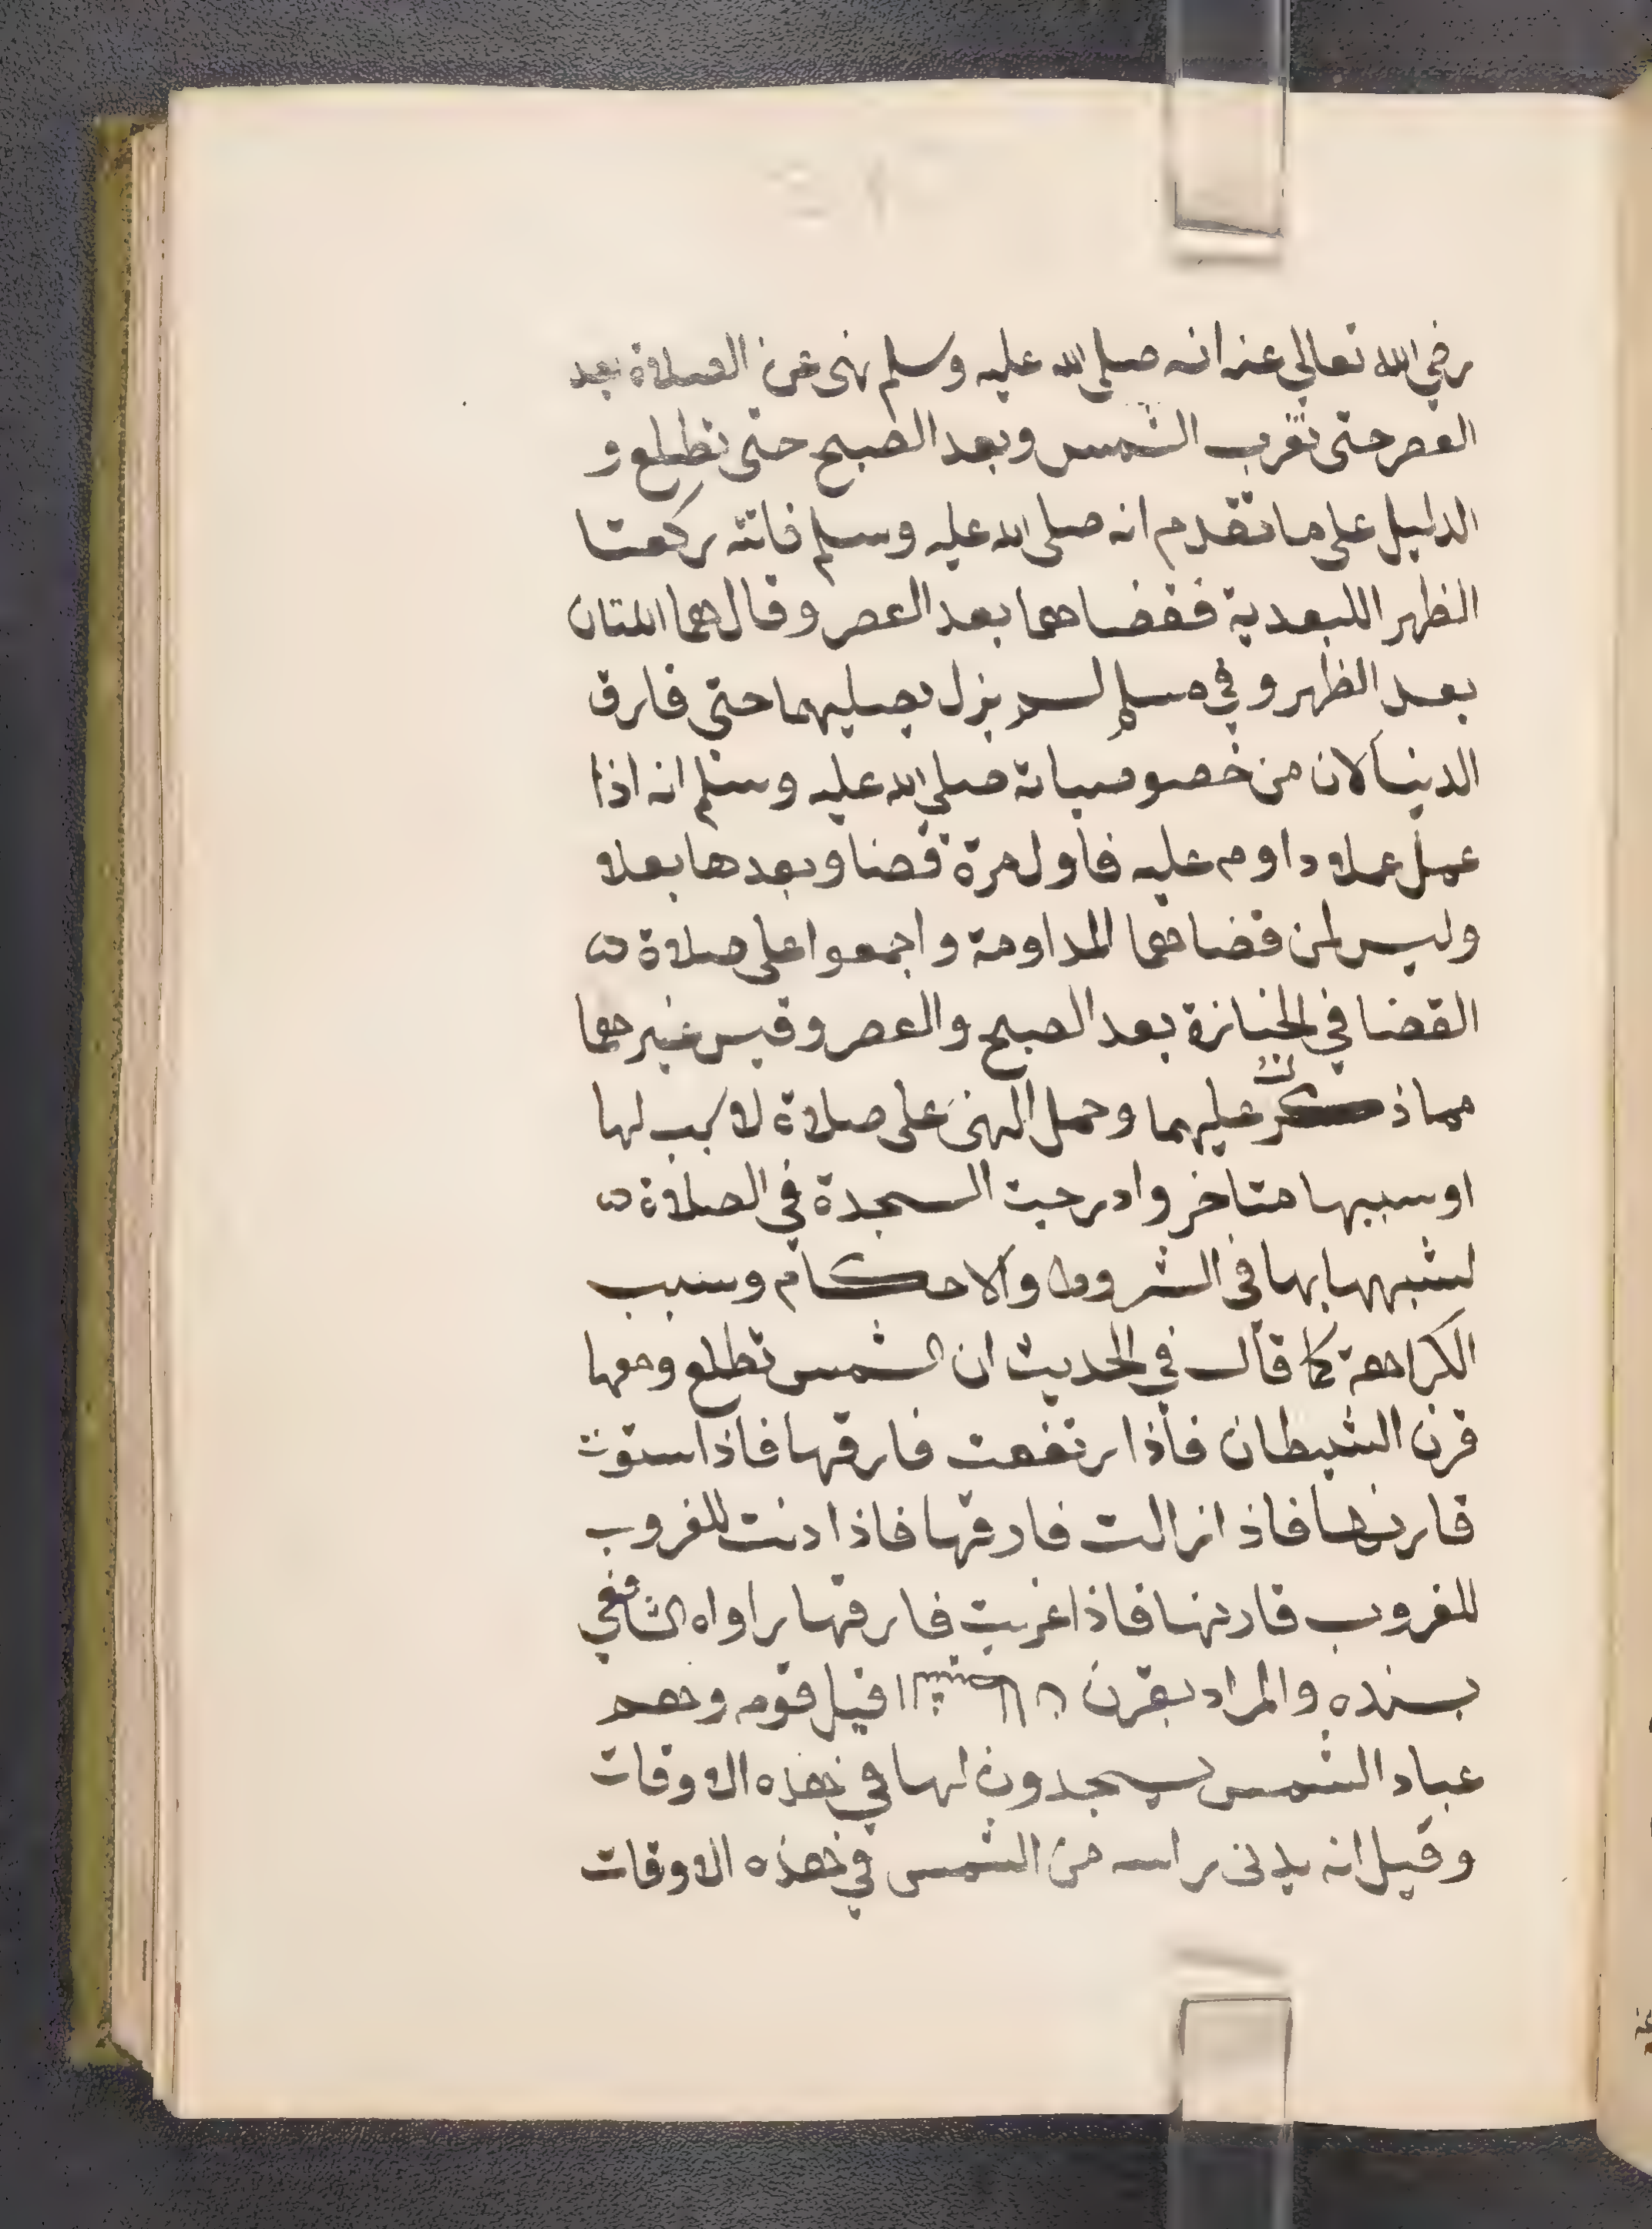 رضي الله تعالي عنه انه صلى الله عليه وسلم نهى عن الصلاة بعد
العصر حتى تغرب الشمس وبعد الصبح حتى تطلع و
الدليل على ما تقدم انه صلى الله عليه وسلم فاتته ركعتا
الظهر اللبعدية فقضاهما بعد العصر وقال هما اللتان
بعد الظهر وفي مسلم لم يزل يصليهما حتى فارق
الدنيا لان من خصوصياته صلي الله عليه وسلم انه اذا
عمل عملا داوم عليه فاول مرة قضا وبعدها بعلا
وليس لمن قضاهما المداومة واجمعوا على صلاة
القضا في الجنازة بعد الصبح والعصر وقيس غيرهما
مما ذكر عليهما وحمل النهى على صلاة لا سبب لها
او سببها متاخر وادرجت السجدة في الصلاة
لشبهها بها في الشروط والاحكام وسبب
الكراهة كما قال في الحديث ان الشمس تطلع ومعها
قرن الشيطان فاذا ارتفعت فارقها فاذا ستوت
قارنها فاذا زالت فارقها فاذا دنت للغروب
للغروب قارنها فاذا غربت فارقها راواه الشافعي
بسنده والمراد بقرن قيل قومه وهم
عباد الشمس يسجدون لها في هذه الاوقات
وقيل انه يدنى راسه من الشمس في هذه الاوقات